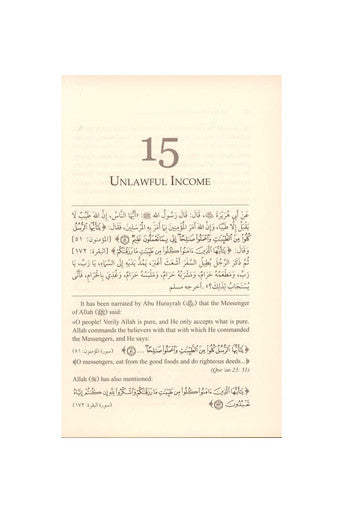 15
UNLAWFUL INCOME
عَنْ أَبِي هُرَيْرَةَ ﷺ، قَالَ: قَالَ رَسُولُ اللهِ ﷺ: «أَيُّهَا النَّاسُ، إِنَّ اللهَ طَيِّبٌ لَا
يَقْبَلُ إِلَّا طَيِّبًا، وَإِنَّ اللهَ أَمَرَ الْمُؤْمِنِينَ بِمَا أَمَرَ بِهِ الْمُرْسَلِينَ، فَقَالَ: ﴿يَٰٓأَيُّهَا ٱلرُّسُلُ
كُلُوا۟ مِنَ ٱلطَّيِّبَٰتِ وَٱعْمَلُوا۟ صَٰلِحًا إِنِّى بِمَا تَعْمَلُونَ عَلِيمٌ﴾ [المؤمنون: ٥١]
وَقَالَ: ﴿يَٰٓأَيُّهَا ٱلَّذِينَ ءَامَنُوا۟ كُلُوا۟ مِن طَيِّبَٰتِ مَا رَزَقْنَٰكُمْ﴾ [البقرة: ١٧٢]
ثُمَّ ذَكَرَ الرَّجُلَ يُطِيلُ السَّفَرَ أَشْعَثَ أَغْبَرَ، يَمُدُّ يَدَيْهِ إِلَى السَّمَاءِ، يَا رَبِّ، يَا
رَبِّ، وَمَطْعَمُهُ حَرَامٌ، وَمَشْرَبُهُ حَرَامٌ، وَمَلْبَسُهُ حَرَامٌ، وَغُذِيَ بِالْحَرَامِ، فَأَنَّى
يُسْتَجَابُ لِذَلِكَ؟». أخرجه مسلم
It has been narrated by Abu Hurayrah that the Messenger
of Allah (ﷺ) said:
«O people! Verily Allah is pure, and He only accepts what is pure.
Allah commands the believers with that with which He commanded
the Messengers, and He says:
﴿يَٰٓأَيُّهَا ٱلرُّسُلُ كُلُوا۟ مِنَ ٱلطَّيِّبَٰتِ وَٱعْمَلُوا۟ صَٰلِحًا ...﴾ (سورة المؤمنون: ٥١)
﴾O messengers, eat from the good foods and do righteous deeds...﴿
(Qur'an 23: 51)
Allah has also mentioned:
﴿يَٰٓأَيُّهَا ٱلَّذِينَ ءَامَنُوا۟ كُلُوا۟ مِن طَيِّبَٰتِ مَا رَزَقْنَٰكُمْ وَٱشْكُرُوا۟ لِلَّهِ إِن كُنتُمْ إِيَّاهُ
تَعْبُدُونَ﴾ (سورة البقرة: ١٧٢)